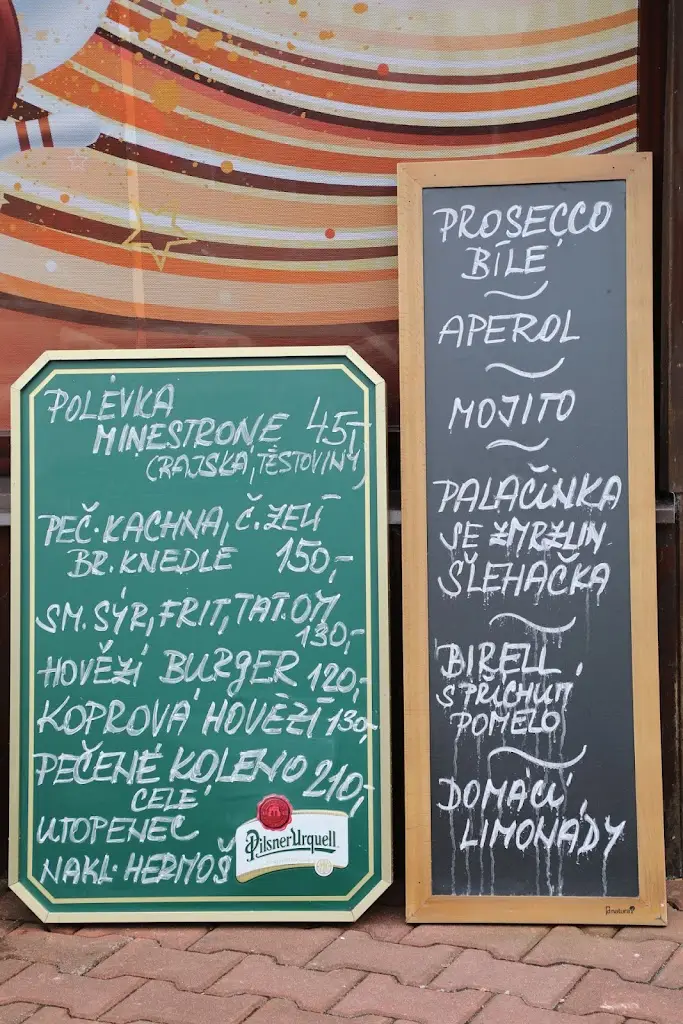 POLÉVKA
MINESTRONE 45,-
(RAJSKÁ, TĚSTOVINY)
PEČ. KACHNA, Č. ZELÍ
BR. KNEDLE 150,-
SM. SÝR, FRIT, TAT. OM
130,-
HOVĚZÍ BURGER 120,-
KOPROVÁ HOVĚZÍ 130,-
PEČENÉ KOLENO 210,-
CELÉ
UTOPENEC
NAKL. HERMOŠ
Pilsner Urquell
PROSECCO
BÍLÉ
APEROL
MOJITO
PALAČINKA
SE ZMRZLIN
ŠLEHAČKA
BIRELL
S PŘÍCHUTÍ
POMELO
DOMÁCÍ
LIMONÁDY